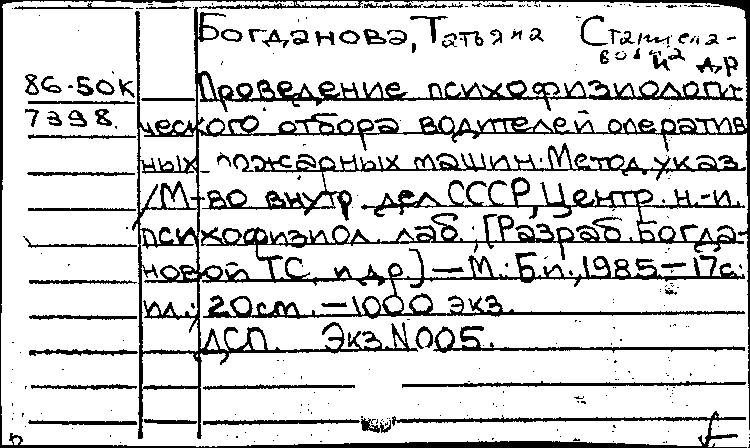 Богданова, Татьяна Станисла-
вовна и др
86-50К Проведение психофизиологи-
7398 ческого отбора водителей оператив
ных пожарных машин. Метод. указ.
/М-во внутр. дел СССР, Центр. н.-и.
психофизиол. лаб.; [Разраб. Богда-
новой Т.С. и др.] — М.: Б.и., 1985 — 17с.:
ил.; 20см. — 1000 экз.
ДСП. Экз. N005.